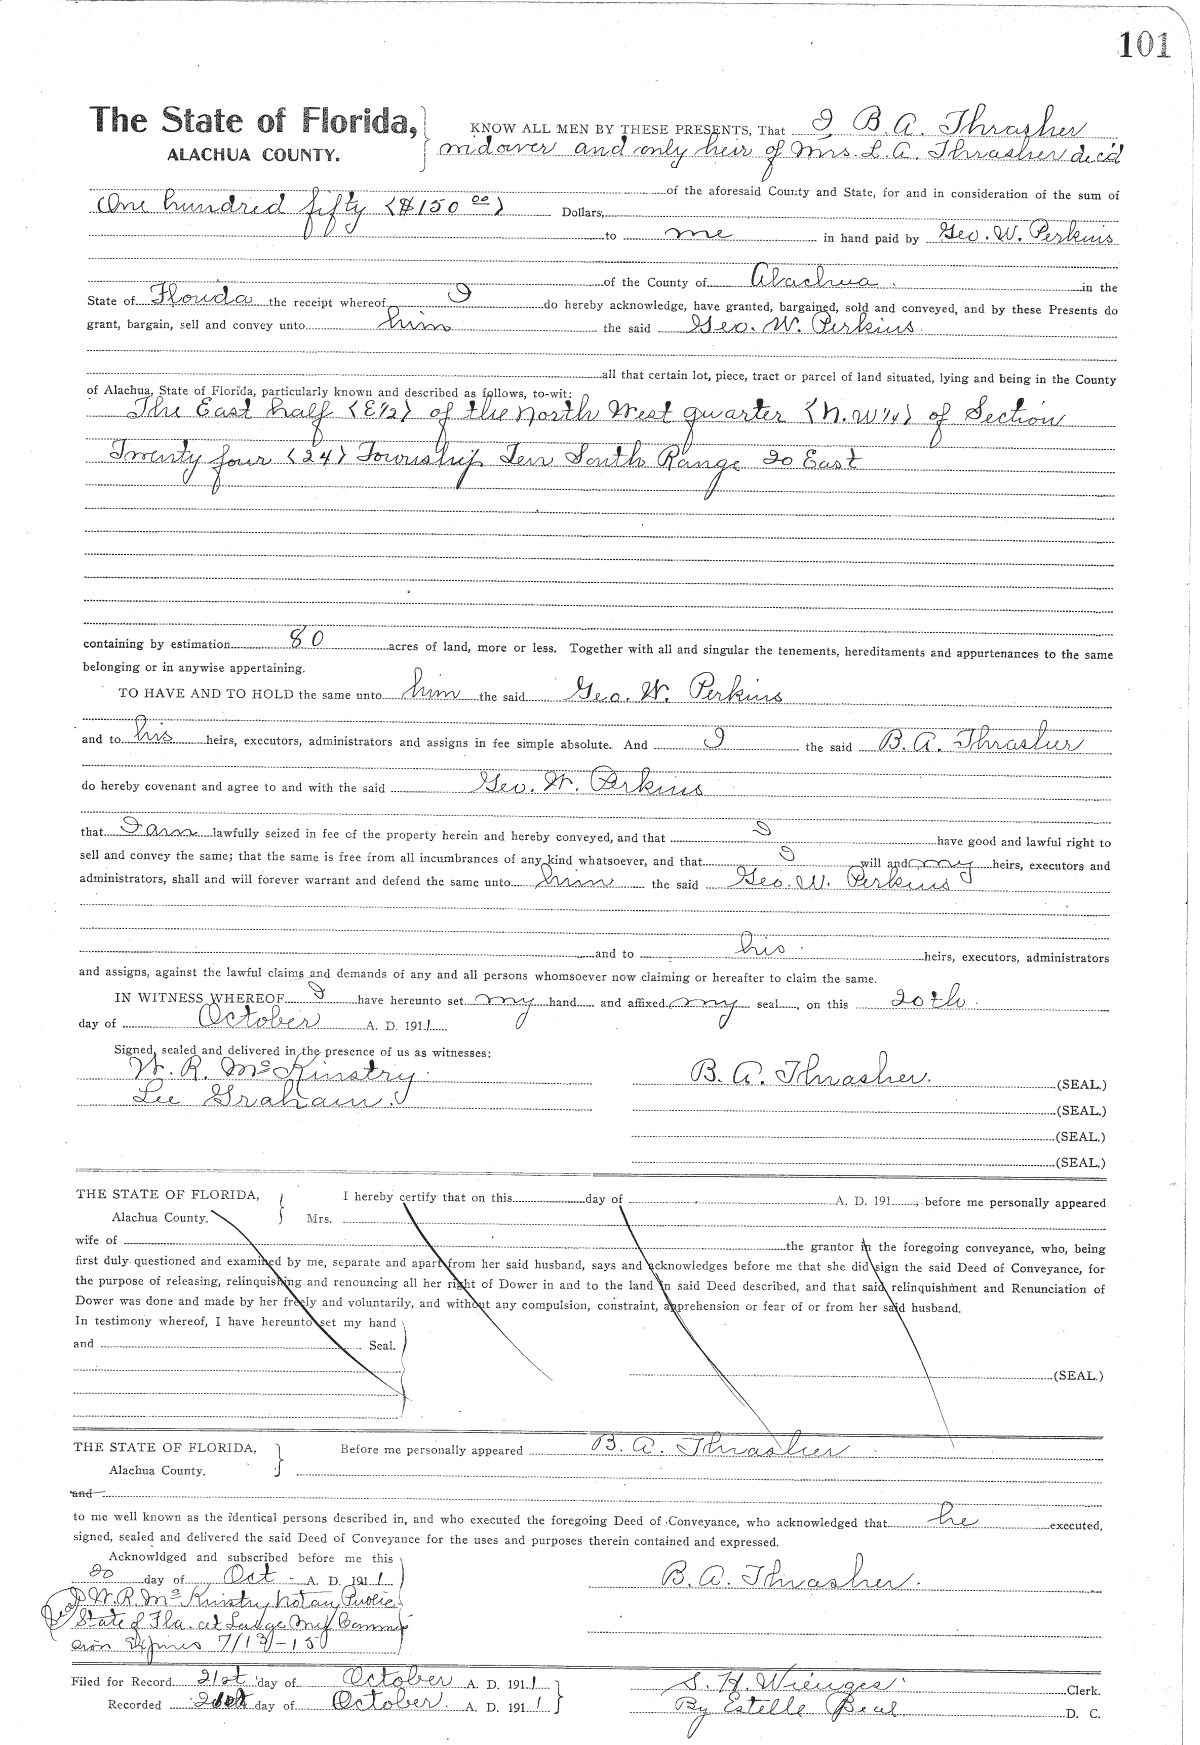 101
The State of Florida, KNOW ALL MEN BY THESE PRESENTS, That I B. A. Thrasher
ALACHUA COUNTY. widower and only heir of Mrs. L. A. Thrasher dec'd
of the aforesaid County and State, for and in consideration of the sum of
One hundred fifty ($150 00) Dollars,
to me in hand paid by Geo. W. Perkins
of the County of Alachua in the
State of Florida the receipt whereof I do hereby acknowledge, have granted, bargained, sold and conveyed, and by these Presents do
grant, bargain, sell and convey unto him the said Geo. W. Perkins
all that certain lot, piece, tract or parcel of land situated, lying and being in the County
of Alachua, State of Florida, particularly known and described as follows, to-wit:
The East half (E½) of the North West quarter (N.W¼) of Section
Twenty four (24) Township Ten South Range 20 East
containing by estimation 80 acres of land, more or less. Together with all and singular the tenements, hereditaments and appurtenances to the same
belonging or in anywise appertaining.
TO HAVE AND TO HOLD the same unto him the said Geo. W. Perkins
and to his heirs, executors, administrators and assigns in fee simple absolute. And I the said B. A. Thrasher
do hereby covenant and agree to and with the said Geo. W. Perkins
that I am lawfully seized in fee of the property herein and hereby conveyed, and that I have good and lawful right to
sell and convey the same; that the same is free from all incumbrances of any kind whatsoever, and that I will and my heirs, executors and
administrators, shall and will forever warrant and defend the same unto him the said Geo. W. Perkins
and to his heirs, executors, administrators
and assigns, against the lawful claims and demands of any and all persons whomsoever now claiming or hereafter to claim the same.
IN WITNESS WHEREOF I have hereunto set my hand and affixed my seal, on this 20th
day of October A. D. 1911
Signed, sealed and delivered in the presence of us as witnesses:
W. R. McKinstry B. A. Thrasher. (SEAL.)
Lee Graham. (SEAL.)
(SEAL.)
(SEAL.)
THE STATE OF FLORIDA, I hereby certify that on this day of A. D. 191 , before me personally appeared
Alachua County. Mrs.
wife of the grantor in the foregoing conveyance, who, being
first duly questioned and examined by me, separate and apart from her said husband, says and acknowledges before me that she did sign the said Deed of Conveyance, for
the purpose of releasing, relinquishing and renouncing all her right of Dower in and to the land in said Deed described, and that said relinquishment and Renunciation of
Dower was done and made by her freely and voluntarily, and without any compulsion, constraint, apprehension or fear of or from her said husband.
In testimony whereof, I have hereunto set my hand
and Seal.
(SEAL.)
THE STATE OF FLORIDA, Before me personally appeared B. A. Thrasher
Alachua County.
and
to me well known as the identical persons described in, and who executed the foregoing Deed of Conveyance, who acknowledged that he executed,
signed, sealed and delivered the said Deed of Conveyance for the uses and purposes therein contained and expressed.
Acknowldged and subscribed before me this
20 day of Oct A. D. 1911 B. A. Thrasher.
W. R. McKinstry Notary Public
State of Fla. at Large My Commis
sion Expires 7/13-15
Filed for Record 21st day of October A. D. 1911 S. H. Wienges Clerk.
Recorded 21st day of October. A. D. 1911 By Estelle Beal D. C.